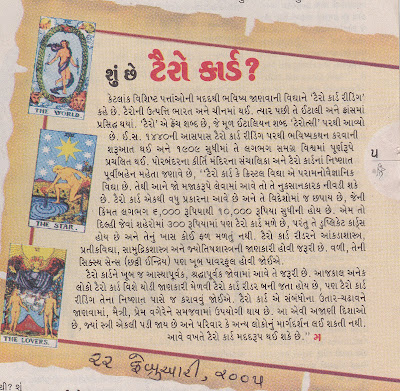 શું છે ટૈરો કાર્ડ?
કેટલાંક વિશિષ્ટ પત્તાંઓની મદદથી ભવિષ્ય જાણવાની વિદ્યાને 'ટૈરો કાર્ડ રીડિંગ'
કહે છે. ટૈરોની ઉત્પત્તિ ભારત અને ચીનમાં થઈ. ત્યાર પછી તે ઈટાલી અને ફ્રાંસમાં
પ્રસિદ્ધ થયાં. 'ટૈરો' એ ફ્રેંચ શબ્દ છે, જે મૂળ ઈટાલિયન શબ્દ 'ટૈરોત્સી' પરથી આવ્યો
છે. ઈ.સ. ૧૪૪૦ની આસપાસ ટૈરો કાર્ડ રીડિંગ પરથી ભવિષ્યકથન કરવાની
શરૂઆત થઈ અને ૧૯૦૯ સુધીમાં તે લગભગ સમગ્ર વિશ્વમાં પૂર્ણરૂપે
પ્રચલિત થઈ. પોરબંદરના કીર્તિ મંદિરના સંચાલિકા અને ટૈરો કાર્ડનાં નિષ્ણાત
પૂર્વીબહેન મહેતા જણાવે છે, ''ટૈરો કાર્ડ કે ક્રિસ્ટલ વિદ્યા એ પરામનોવૈજ્ઞાનિક
વિદ્યા છે. તેથી આને જો મજાકરૂપે લેવામાં આવે તો તે નુકસાનકારક નીવડી શકે
છે. ટૈરો કાર્ડ એકથી વધુ પ્રકારના આવે છે અને તે વિદેશોમાં જ છપાય છે, જેની
કિંમત લગભગ ૬,૦૦૦ રૂપિયાથી ૧૦,૦૦૦ રૂપિયા સુધીની હોય છે. એમ તો
દિલ્હી જેવાં શહેરોમાં ૩૦૦ રૂપિયામાં પણ ટૈરો કાર્ડ મળે છે, પરંતુ તે ડુપ્લિકેટ કાર્ડ્સ
હોય છે અને તેનું ખાસ કોઈ ફળ મળતું નથી. ટૈરો કાર્ડ રીડરને આંકડાશાસ્ત્ર,
પ્રતીકવિદ્યા, સામુદ્રિકશાસ્ત્ર અને જ્યોતિષશાસ્ત્રની જાણકારી હોવી જરૂરી છે. વળી, તેની
સિક્સ્થ સેન્સ (છઠ્ઠી ઈન્દ્રિય) પણ ખૂબ પાવરફુલ હોવી જોઈએ.
ટૈરો કાર્ડને ખૂબ જ આસ્થાપૂર્વક, શ્રદ્ધાપૂર્વક જોવામાં આવે તે જરૂરી છે. આજકાલ અનેક
લોકો ટૈરો કાર્ડ વિશે થોડી જાણકારી મેળવી ટૈરો કાર્ડ રીડર બની જતા હોય છે, પણ ટૈરો કાર્ડ
રીડિંગ તેના નિષ્ણાત પાસે જ કરાવવું જોઈએ. ટૈરો કાર્ડ એ સંબંધોના ઉતાર-ચઢાવને
જાણવામાં, મૈત્રી, પ્રેમ વગેરેને સમજવામાં ઉપયોગી થાય છે. આ એવી અજાણી દિશાઓ
છે, જ્યાં સ્ત્રી એકલી પડી જાય છે અને પરિવાર કે અન્ય લોકોનું માર્ગદર્શન લઈ શકતી નથી.
આવે વખતે ટૈરો કાર્ડ મદદરૂપ થઈ શકે છે.''
THE WORLD.
THE STAR.
THE LOVERS.
૫
૨૨ ફેબ્રુઆરી, ૨૦૦૫